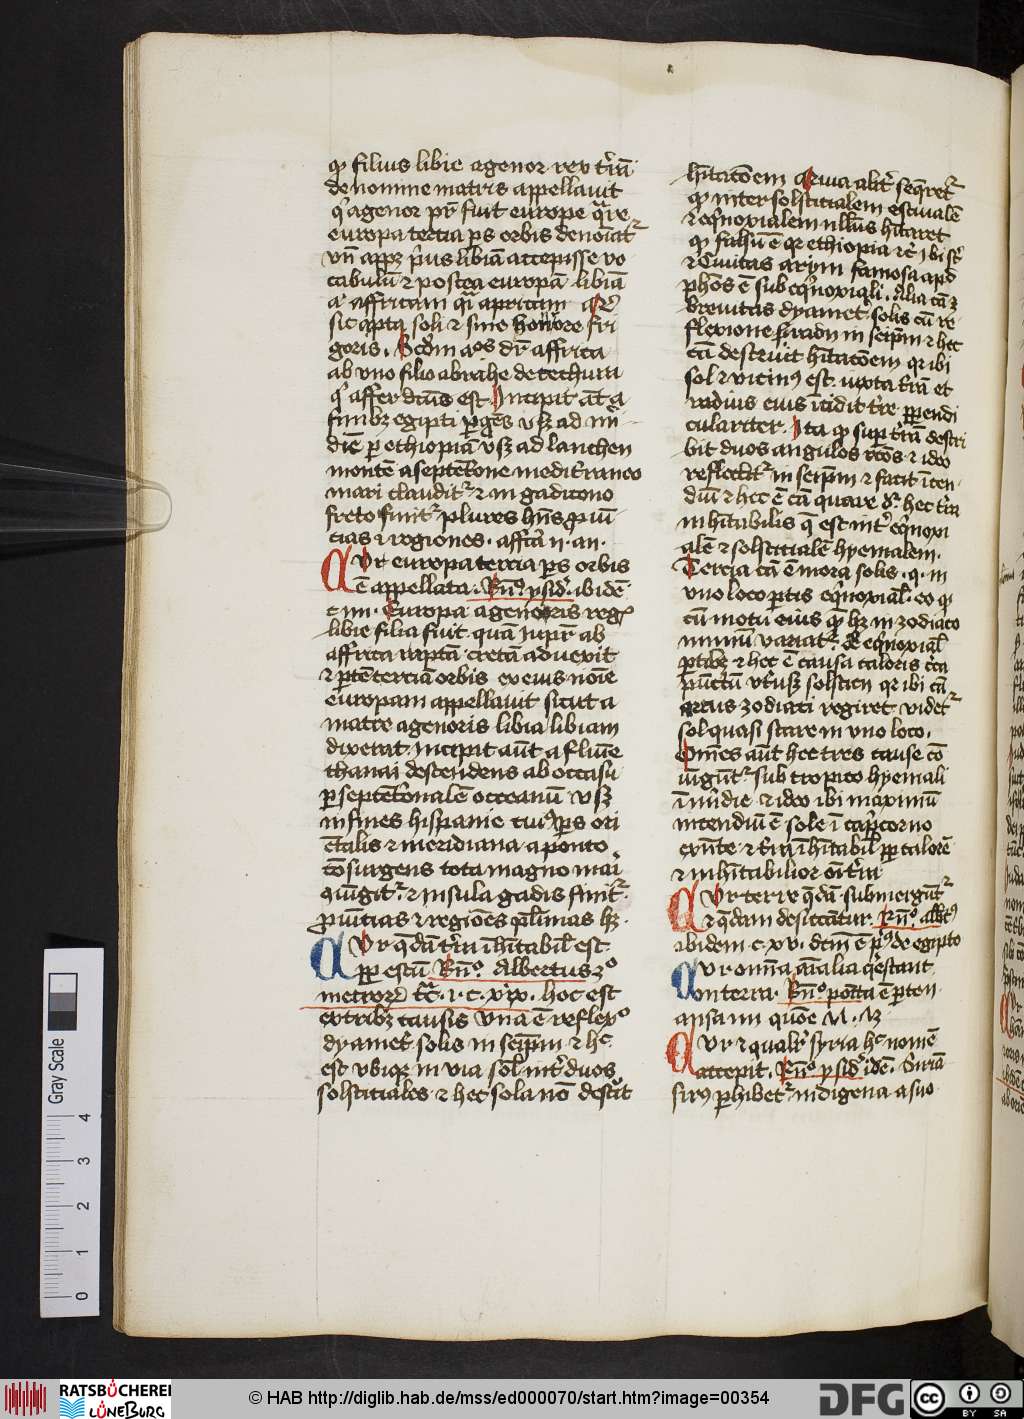 qꝫ filius libie agenor rex t̄rā
de nomine matris appellauit
qͥ agenor pr̄ fuit europe q̄re
europa tertia ps orbis denoiatᷣ
vn̄ appꝫ pͥus libiā accepisse vo
cabulū ⁊ postea europā libiā
aͭ affricam qͣi apricam
sic apta soli ⁊ sine horrore fri
goris. Scd̄m aͦs dr̄ affrica
ab vno filio abrahe de techura
qͥ affer dc̄us est. Incipit āt a
finibꝫ egipti ꝑgēs vsꝫ ad mͥ
die ꝑ ethiopiā vsꝫ ad lanchen
montē a septētone meditraneo
mari clauditᷣ ⁊ in gaditono
freto finitᷣ plures hn̄s ꝓuī
cias ⁊ regiones. affͥca n. an.
Vr europa tercia ps orbis
ē appellata. Rn̄ᵒ. ysidᷣ. ibidē
c iiii. Europa agenoris regꝭ
libie filia fuit quā iupr̄ ab
affrica raptā cretā aduexit
⁊ ꝑtē terciā orbis ex eius noīe
europam appellauit sicut a
matre agenoris libia libiam
dixerat. Incipit aūt a flūīe
thanai descendens ab occasu
ꝑ septētonalē occeanū vsꝫ
in fines hispanie cuiꝰ ps ori
ētalis ⁊ meridiana a ponto
cōsurgens tota magno mari
qiūgitᷣ. ⁊ insula gadis finitᷣ
ꝓuīcias ⁊ regiōes pl̄imas hꝫ.
Vr qdā t̄ra īhītabil̄ est
ꝓp estū Rn̄ᵒ. Albertus 3ᵒ
metheorͦ tc̄. i. c. xix. hoc est
ex tribꝫ causis vna ē reflexͦ
dyamet̄ solis in seip̄m ⁊ hͨ
est vbiqꝫ in via sol̄ int̄ duos
solsticiales ⁊ hec sola nō destͥt
hītatōem
qꝫ inter solsticialem estiualē
⁊ eqͥnoxialem nullus hītaret
qꝫ falsū ē qr ethiopia
⁊ ciuitas arym famosa apd
phōs ē sub eqͥnoxiali. Alia cā ē
breuitas dyametᷣ. solis cū re
flexione in seip̄m ⁊ hec
cā destruit hītatōem qr ibi
sol ⁊ vicinꝰ est. iuxta t̄rā et
radius eius īcidit t̄re ꝑpendi
culariter. Ita qꝫ suꝑ t̄rā descri
bit duos angulos rc̄os ⁊ ideo
reflectitᷣ in seip̄m ⁊ facit īcen
diū ⁊ hec ē cā quare dͥ. hec t̄ra
inhītabilis q̄ est int̄ eqͥnoxi
alē ⁊ solsticialē hyemalem.
Tercia cā ē mora solis. q. in
vno loco ꝑtis eqͥnoxial̄. eo qꝫ
cū motū eius qꝫ hꝫ in zodiaco
minimū variatᷣ. de eqͥnoxial̄
ꝑtibꝫ ⁊ hec ē causa caloris cͥca
pūctū vtrusqꝫ solsticii qr ibi cū
arcus zodiaci regiret videtᷣ
sol quasi stare in vno loco.
Omēs aūt hee tres cause cō
iūgūtᷣ. sub tropico hyemali
ī mͥdie ⁊ ideo ibi maximū
incendiū ē sole ī capͥcorno
exn̄te ⁊ t̄ra īhītabil̄ ꝓp calorē
⁊ inhītabilior oī t̄ra
Vr terre q̄dā submergūtᷣ
⁊ q̄dam desiccātur. Rn̄ᵒ. alb̄tꝰ
ibidem. c. xv. dc̄m ē pͥꝰ de egipto
Vr omīa aīalia qͥestant
on terra. Rn̄ᵒ. poīta ē ꝑten
ansa in quōe
Vr ⁊ qualr̄ syria hͨ nomē
accepit. Rn̄ᵒ ysidᷣ. idē. Siriā
sirꝰ ꝑhibetᷣ. indigena a suo
Gray Scale
0 1 2 3 4
RATSBÜCHEREI
LÜNEBURG
© HAB http://diglib.hab.de/mss/ed000070/start.htm?image=00354
DFG
CC BY SA